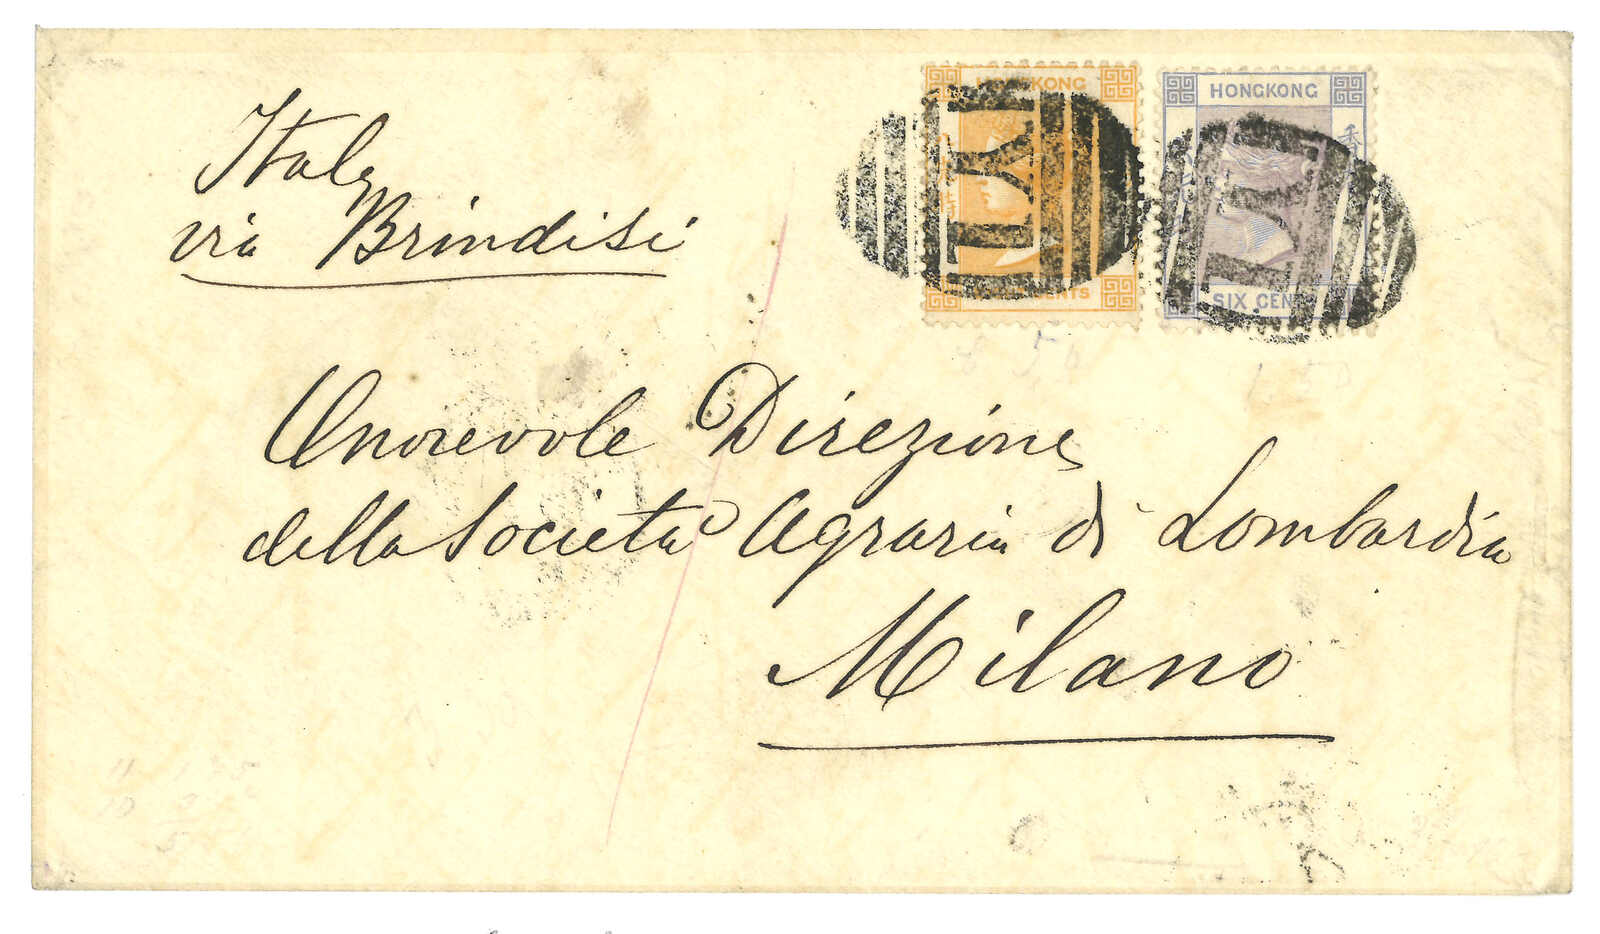 HONGKONG
HONGKONG
CENTS
SIX CEN
Italy
via Brindisi
Onorevole Direzione
della Società Agraria di Lombardia
Milano